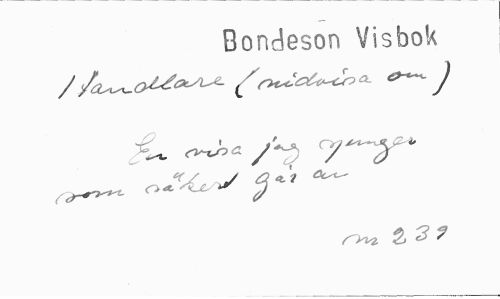 Bondeson Visbok
Handlare (nidvisa om)
En visa jag sjunger
som säkert går an
nr 239